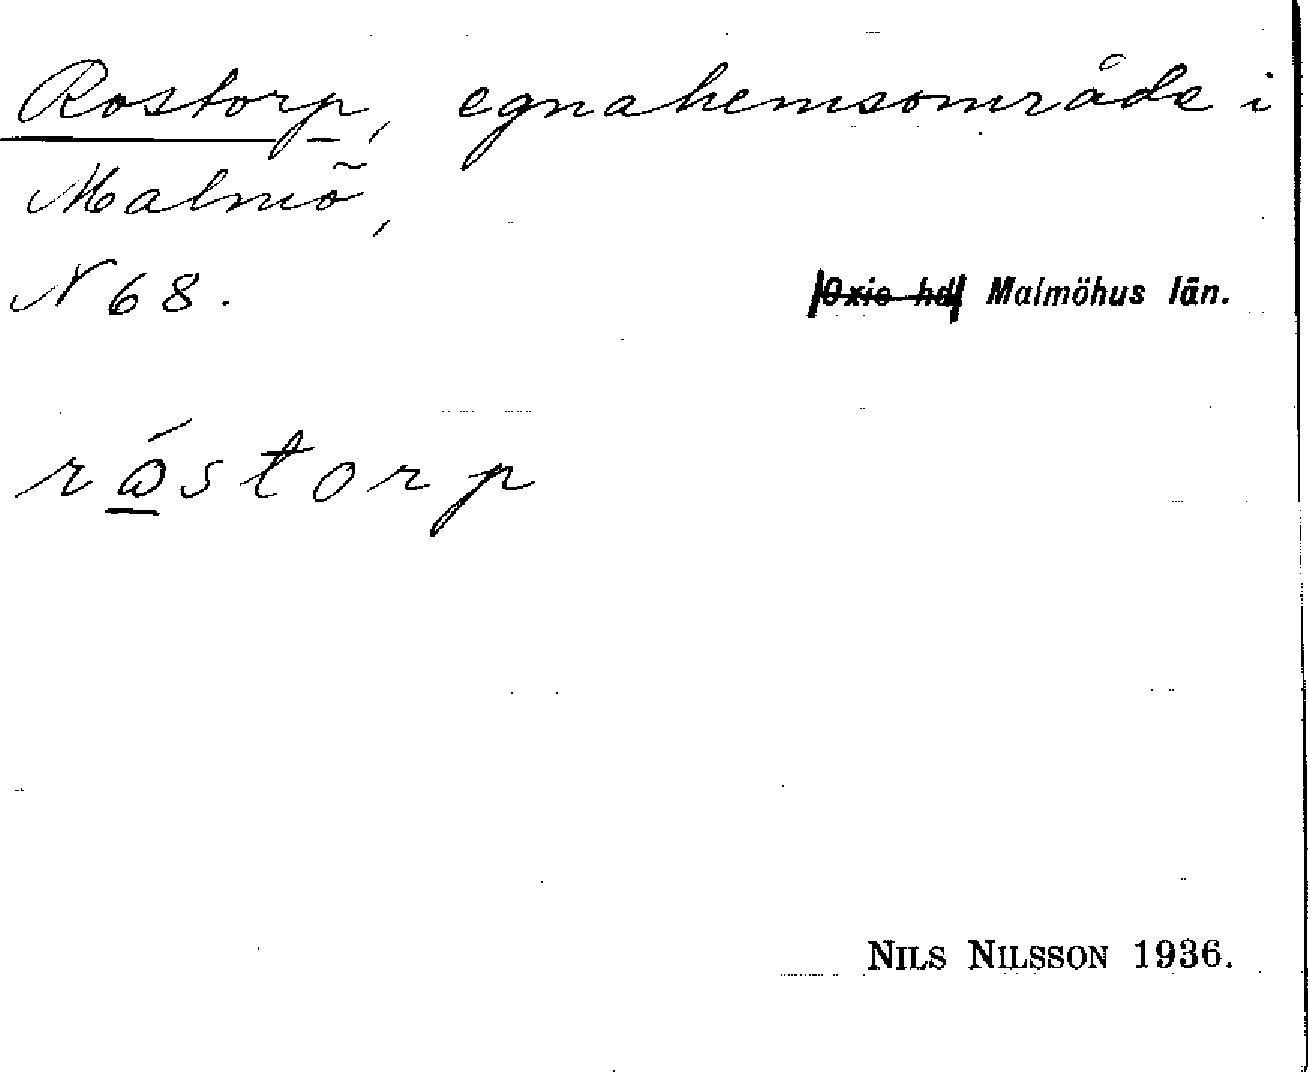 Rostorp, egnahemsområde i
Malmö,
N 68.
Oxie hd Malmöhus län.
róstorp
NILS NILSSON 1936.